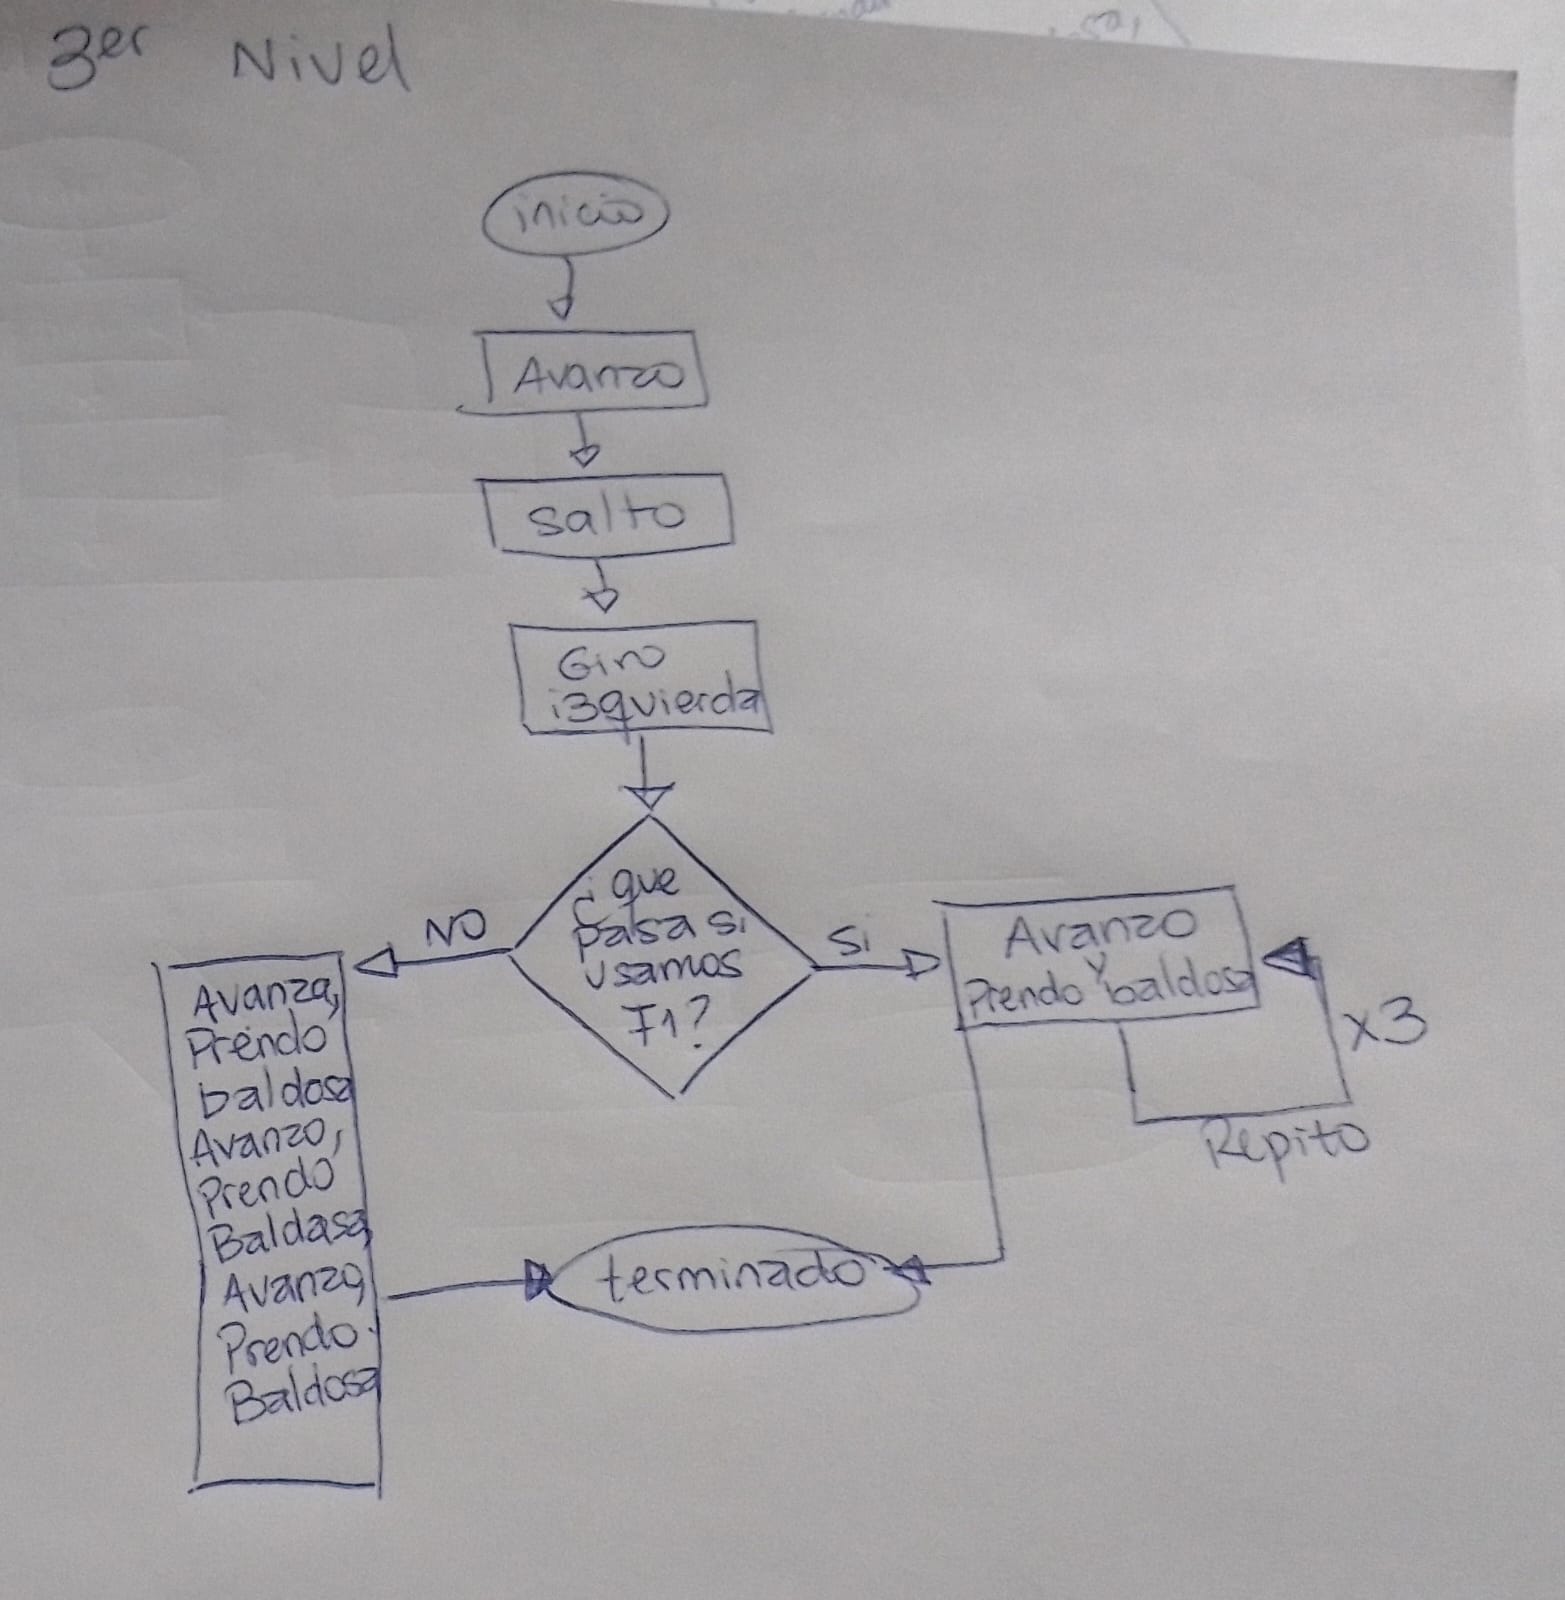 3er Nivel
inicio
Avanzo
salto
Giro
izquierda
¿que
pasa si
usamos
F1?
NO
Si
Avanza,
Prendo
baldosa
Avanzo,
Prendo
Baldasa,
Avanzo,
Prendo.
Baldosa
Avanzo
y
Prendo baldosa
x3
Repito
terminado